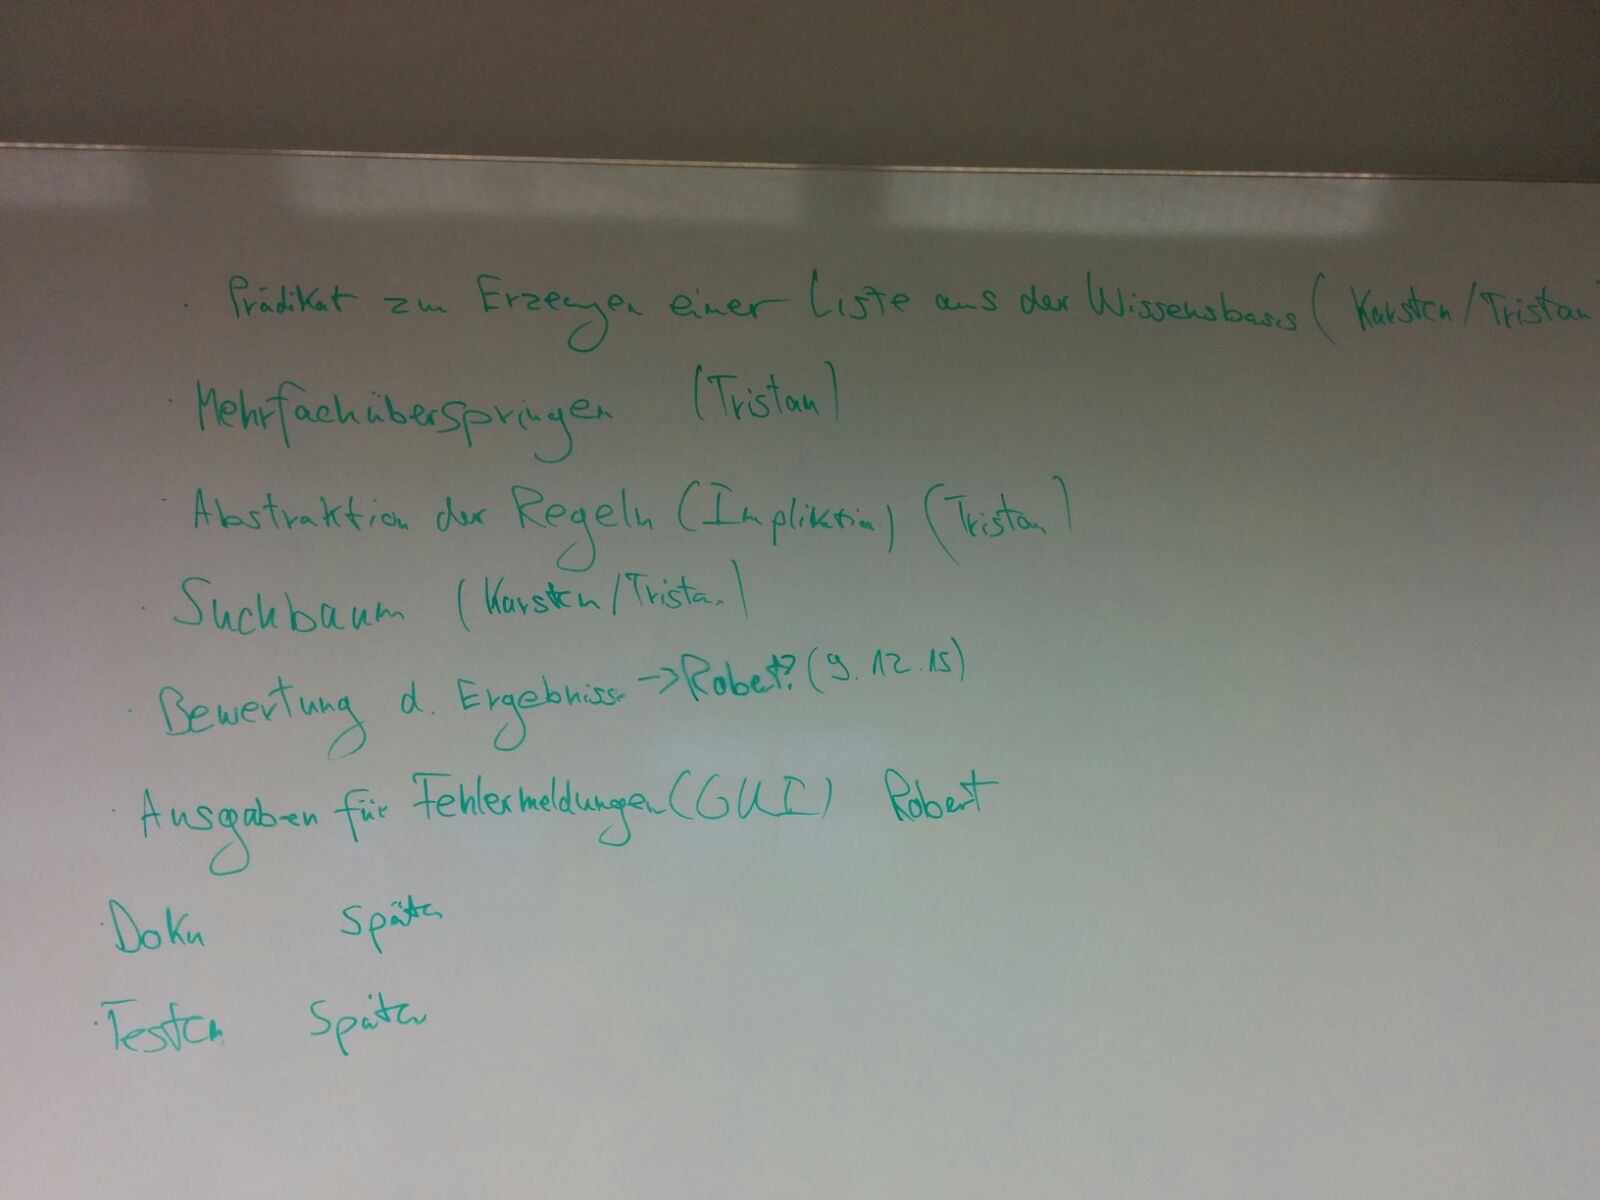 · Prädikat zum Erzeugen einer Liste aus der Wissensbasis (Karsten/Tristan
· Mehrfachüberspringen (Tristan)
· Abstraktion der Regeln (Impliktion) (Tristan)
· Suchbaum (Karsten/Tristan)
· Bewertung d. Ergebnisse -> Robert? (9.12.15)
· Ausgaben für Fehlermeldungen (GUI) Robert
· Doku Später
· Testen Später